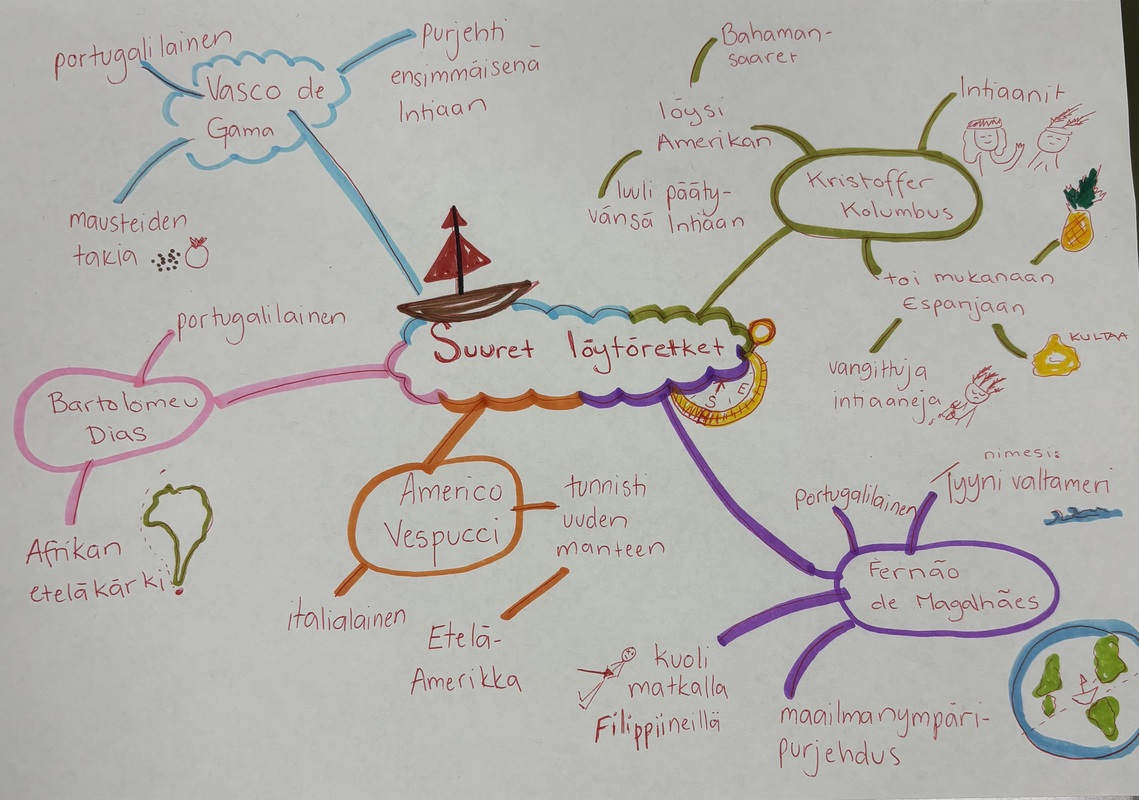 Suuret löytöretket
S E
portugalilainen
Vasco de
Gama
Purjehti
ensimmäisenä
Intiaan
mausteiden
takia
Bahaman-
saaret
löysi
Amerikan
luuli pääty-
vänsä Intiaan
Kristoffer
Kolumbus
Intiaanit
toi mukanaan
Espanjaan
vangittuja
intiaaneja
KULTAA
portugalilainen
Bartolomeu
Dias
Afrikan
eteläkärki
Americo
Vespucci
tunnisti
uuden
manteen
italialainen
Etelä-
Amerikka
portugalilainen
nimesi:
Tyyni valtameri
Fernão
de Magalhães
kuoli
matkalla
Filippiineillä
maailmanympäri-
purjehdus